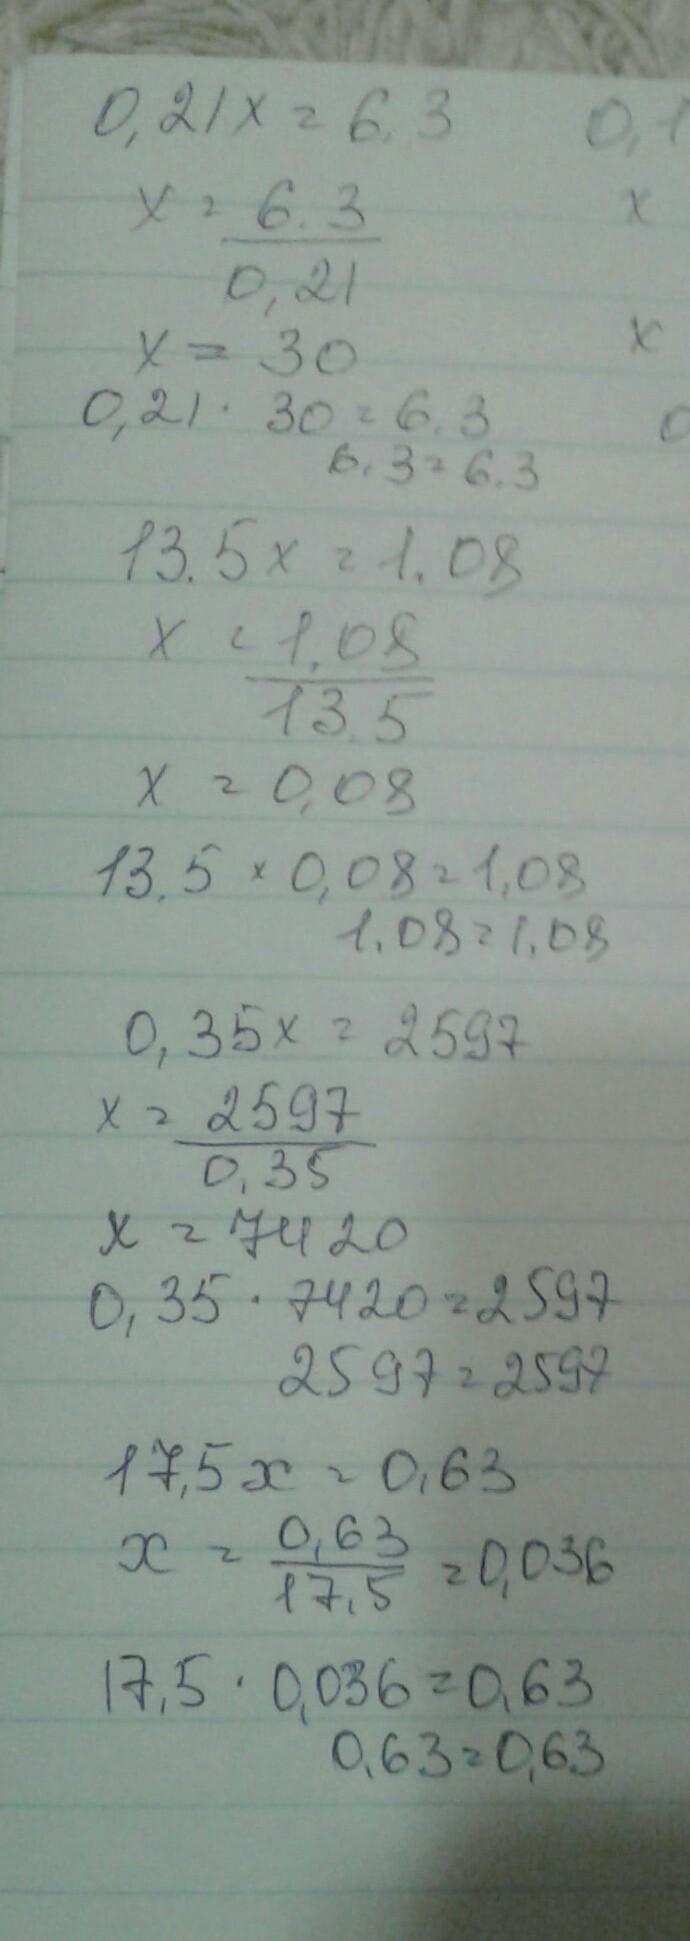 0,21x = 6.3
x = 6.3
0,21
x = 30
0,21 · 30 = 6.3
6.3 = 6.3
13.5x = 1.08
x = 1.08
13.5
x = 0,08
13.5 × 0,08 = 1,08
1.08 = 1.08
0,35x = 2597
x = 2597
0,35
x = 7420
0,35 · 7420 = 2597
2597 = 2597
17,5x = 0,63
x = 0,63 = 0,036
17,5
17,5 · 0,036 = 0,63
0,63 = 0,63
0,1
x
x
0